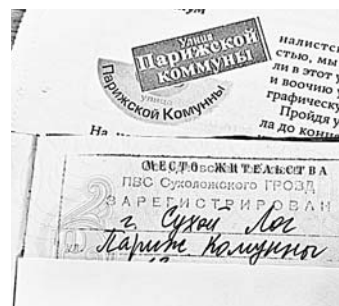 Улица
Парижской
коммуны
улица
Парижской Комунны
налистс
стью, мы
ли в этот у
и воочию у
графическу
Пройдя у
ла до конц
На
МЕСТО ЖИТЕЛЬСТВА
ПВС Сухоложского ГРОВД
ЗАРЕГИСТРИРОВАН
г. Сухой Лог
Париж Комунны